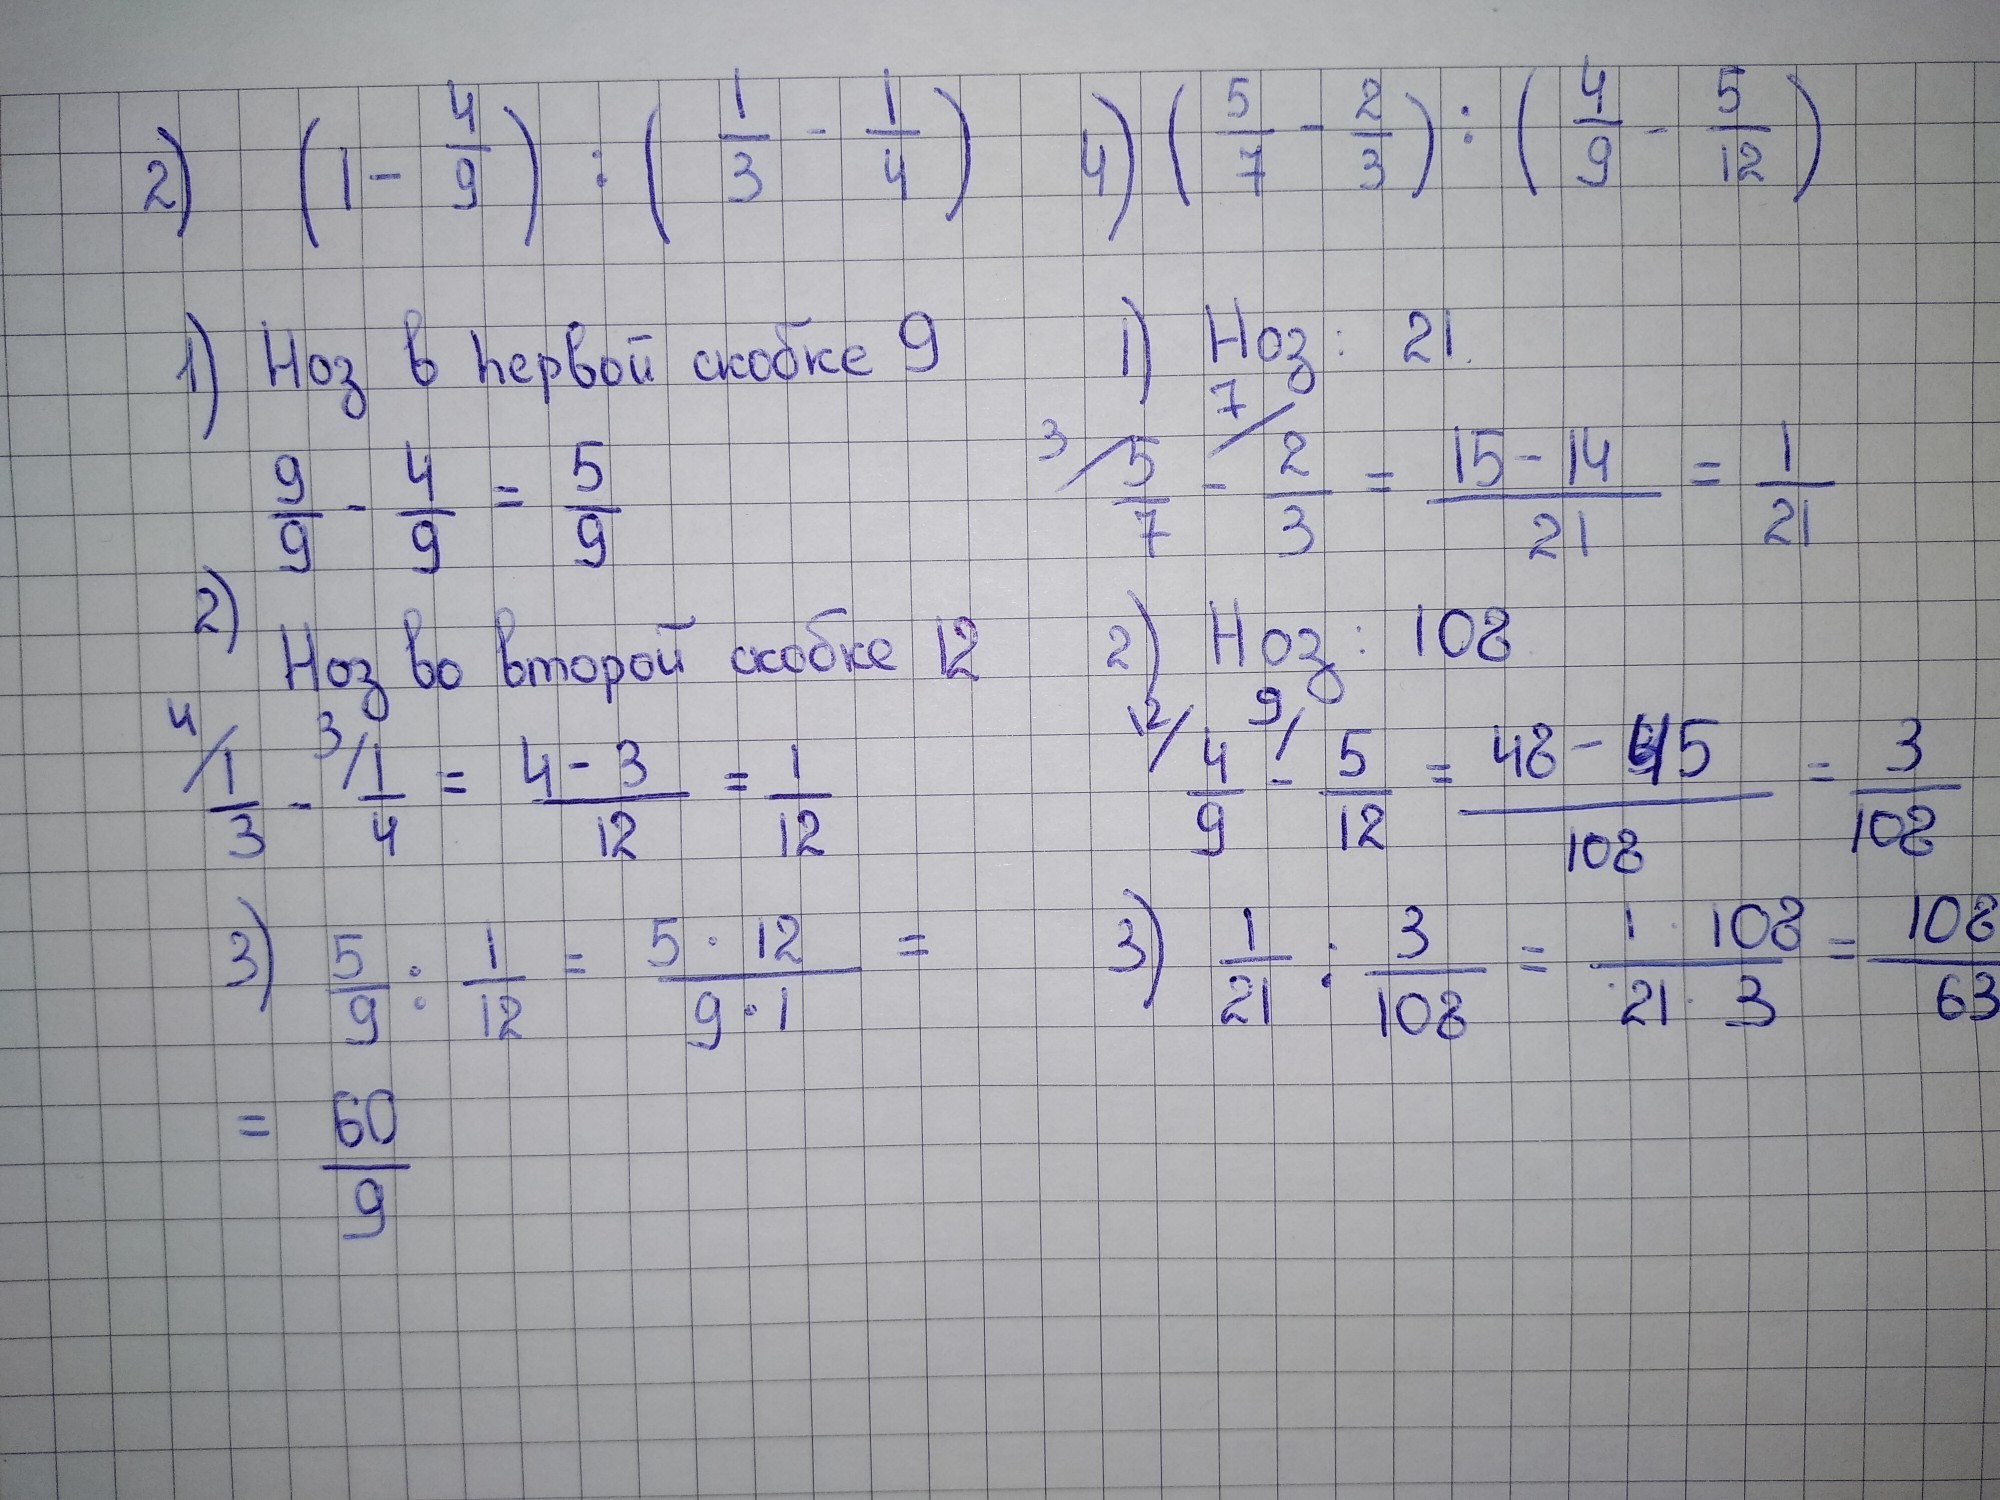 2) (1 - 4/9) : (1/3 - 1/4)
1) Ноз в первой скобке 9
9/9 - 4/9 = 5/9
2) Ноз во второй скобке 12
4/ 1/3 - 3/ 1/4 = (4 - 3)/12 = 1/12
3) 5/9 : 1/12 = (5 · 12)/(9 · 1) =
= 60/9
4) (5/7 - 2/3) : (4/9 - 5/12)
1) Ноз: 21.
3/ 5/7 - 7/ 2/3 = (15 - 14)/21 = 1/21
2) Ноз: 108
12/ 4/9 - 9/ 5/12 = (48 - 45)/108 = 3/108
3) 1/21 : 3/108 = (1 · 108)/(21 · 3) = 108/63